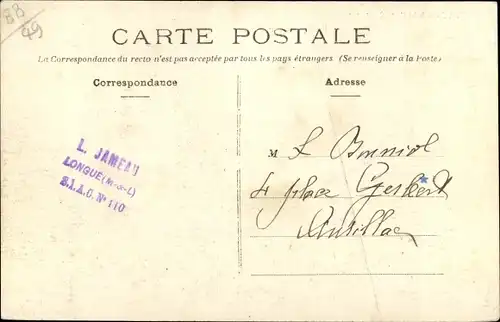 88
49
CARTE POSTALE
La Correspondance du recto n'est pas acceptée par tous les pays étrangers. (Se renseigner à la Poste)
Correspondance
Adresse
L. JAMEAU
LONGUÉ (M.-&-L)
S.I.A.C. N° 110
M L Bonniol
4 place Gerbert
Aurillac